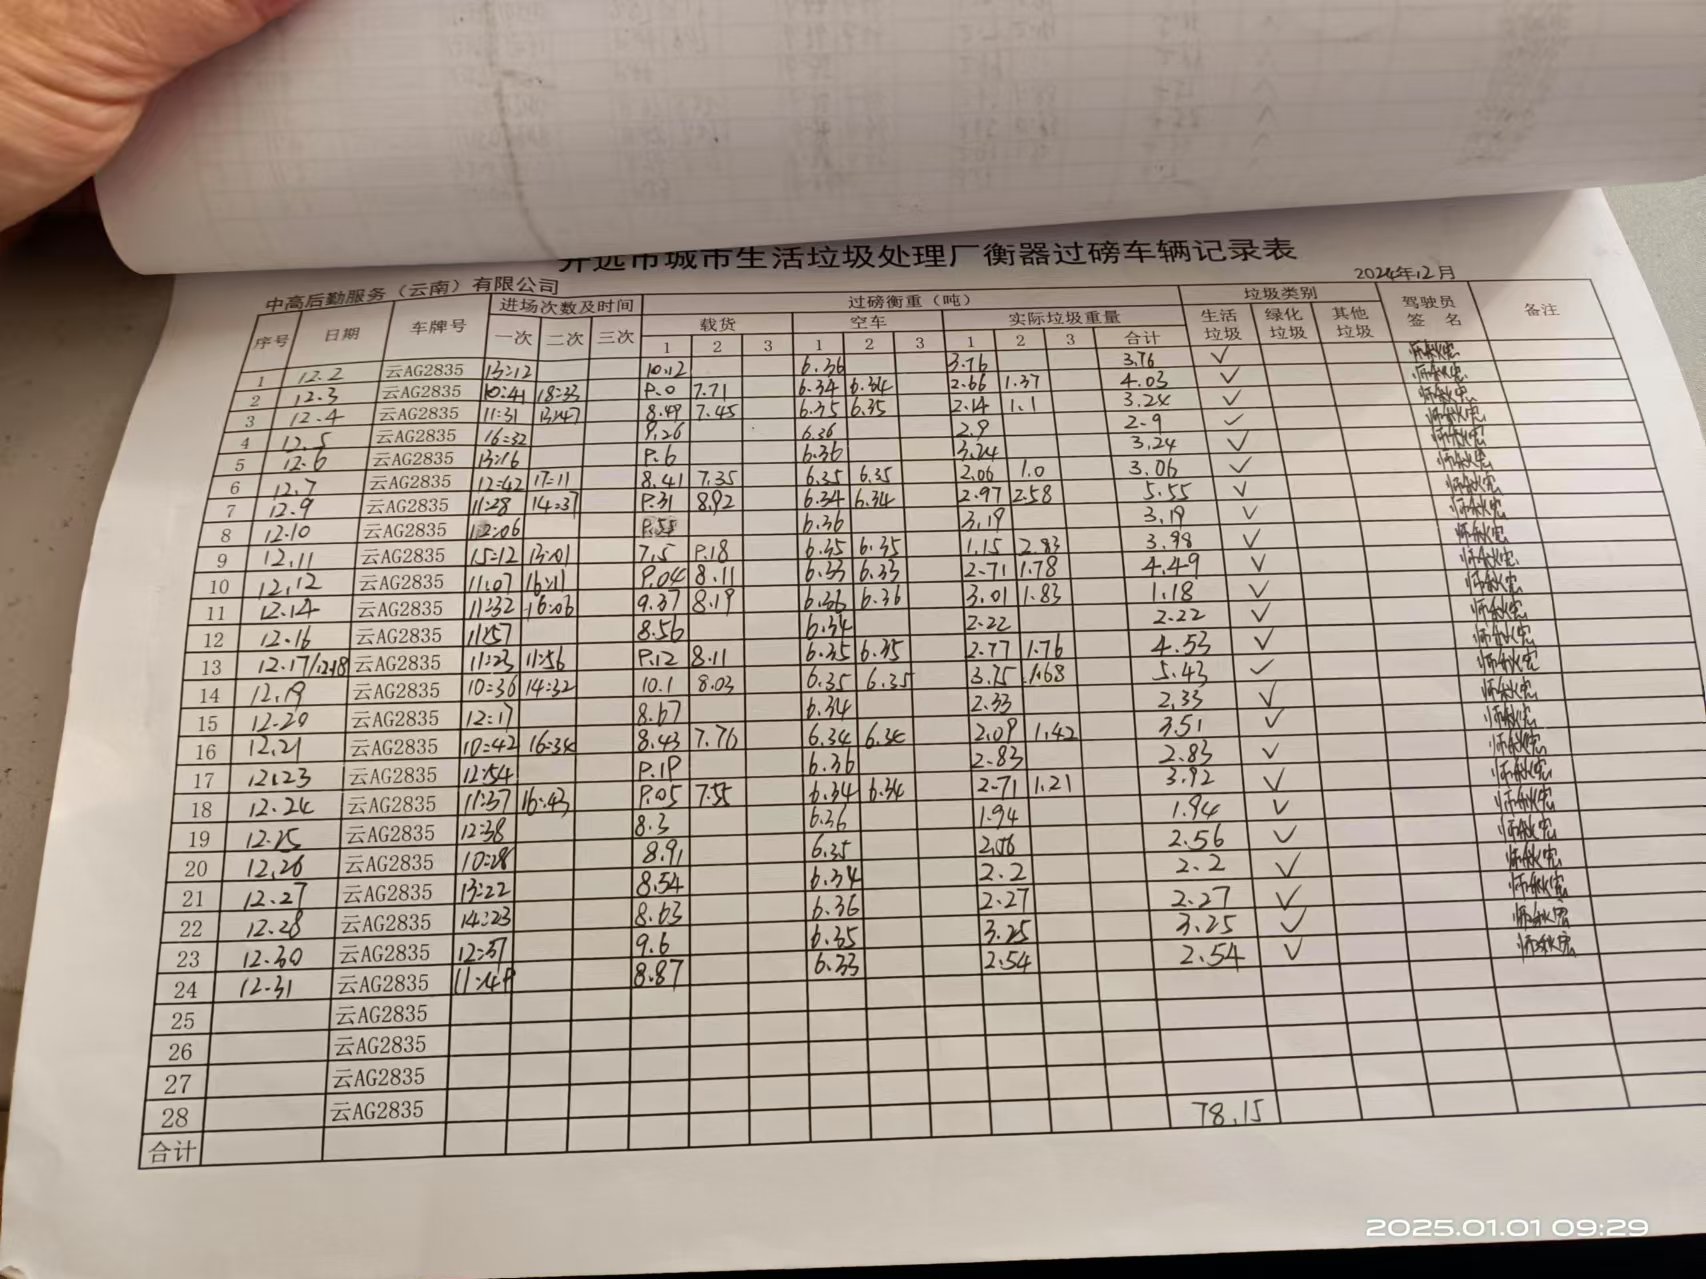 开远市城市生活垃圾处理厂衡器过磅车辆记录表
中高后勤服务（云南）有限公司 2024年12月
序号 日期 车牌号 进场次数及时间 过磅衡重（吨） 垃圾类别 驾驶员签 名 备注
一次 二次 三次 载货 空车 实际垃圾重量 生活垃圾 绿化垃圾 其他垃圾
1 2 3 1 2 3 1 2 3 合计
1 12.2 云AG2835 13:12 10.12 6.36 3.76 3.76 ✓
2 12.3 云AG2835 10:41 18:33 9.0 7.71 6.34 6.34 2.66 1.37 4.03 ✓
3 12.4 云AG2835 11:31 13:47 8.49 7.45 6.35 6.35 2.14 1.1 3.24 ✓
4 12.5 云AG2835 16:32 9.26 6.36 2.9 2.9 ✓
5 12.6 云AG2835 13:16 9.6 6.36 3.24 3.24 ✓
6 12.7 云AG2835 12:42 17:11 8.41 7.35 6.35 6.35 2.06 1.0 3.06 ✓
7 12.9 云AG2835 11:28 14:37 9.31 8.92 6.34 6.34 2.97 2.58 5.55 ✓
8 12.10 云AG2835 12:06 9.55 6.36 3.19 3.19 ✓
9 12.11 云AG2835 15:12 13:01 7.5 9.18 6.35 6.35 1.15 2.83 3.98 ✓
10 12.12 云AG2835 11:07 16:11 9.04 8.11 6.33 6.33 2.71 1.78 4.49 ✓
11 12.14 云AG2835 11:32 16:06 9.37 8.19 6.36 6.36 3.01 1.83 1.18 ✓
12 12.16 云AG2835 11:57 8.56 6.34 2.22 2.22 ✓
13 12.17/12.18 云AG2835 11:23 11:56 9.12 8.11 6.35 6.35 2.77 1.76 4.53 ✓
14 12.19 云AG2835 10:36 14:32 10.1 8.03 6.35 6.35 3.75 1.68 5.43 ✓
15 12.20 云AG2835 12:17 8.67 6.34 2.33 2.33 ✓
16 12.21 云AG2835 10:42 16:34 8.43 7.76 6.34 6.34 2.09 1.42 3.51 ✓
17 12.23 云AG2835 12:54 9.19 6.36 2.83 2.83 ✓
18 12.24 云AG2835 11:37 16:43 9.05 7.55 6.34 6.34 2.71 1.21 3.92 ✓
19 12.25 云AG2835 12:38 8.3 6.36 1.94 1.94 ✓
20 12.26 云AG2835 10:28 8.91 6.35 2.56 2.56 ✓
21 12.27 云AG2835 13:22 8.54 6.34 2.2 2.2 ✓
22 12.28 云AG2835 14:23 8.63 6.36 2.27 2.27 ✓
23 12.30 云AG2835 12:37 9.6 6.35 3.25 3.25 ✓
24 12.31 云AG2835 11:49 8.87 6.33 2.54 2.54 ✓
25 云AG2835
26 云AG2835
27 云AG2835
28 云AG2835
合计 78.15
2025.01.01 09:29